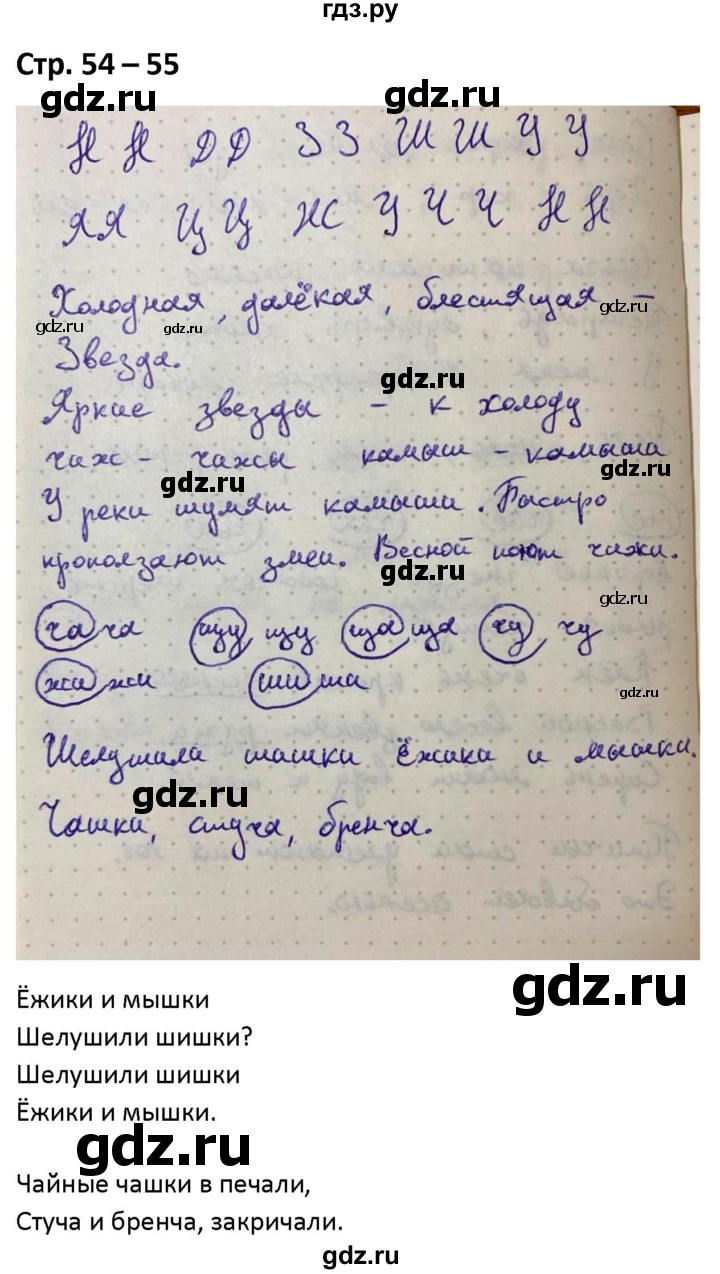 гдз.ру
Стр. 54 – 55
gdz.ru gdz.ru
Н Н Д Д З З Ш Ш У У
Я Я Ц Ц Ж У Ч Ч Н Н
Холодная, далёкая, блестящая –
gdz.ru gdz.ru gdz.ru
Звезда.
gdz.ru
Яркие звезды – к холоду
чиж – чижы камыш – камыши
gdz.ru gdz.ru
У реки шумят камыши. Быстро
проползают змеи. Весной поют чижи.
gdz.ru
gdz.ru
ча ча щу, щу ща ща чу, чу
gdz.ru
жи жи ши ши
gdz.ru
Шелушила шишки Ёжики и мышки.
gdz.ru
Чашки, стуча, бренча.
gdz.ru
Ёжики и мышки
Шелушили шишки?
Шелушили шишки
Ёжики и мышки.
gdz.ru
Чайные чашки в печали,
Стуча и бренча, закричали.
gdz.ru